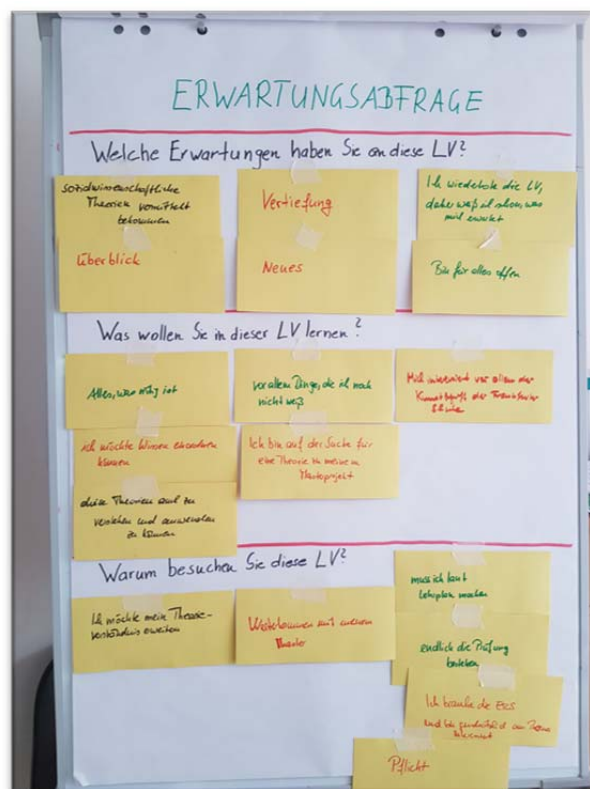 ERWARTUNGSABFRAGE
Welche Erwartungen haben Sie an diese LV?
sozialwissenschaftliche
Theorien vermittelt
bekommen
Vertiefung
Ich wiederhole die LV,
daher weiß ich schon, was
mich erwartet
Überblick
Neues
Bin für alles offen
Was wollen Sie in dieser LV lernen?
Alles, was nötig ist
vor allem Dinge, die ich noch
nicht weiß
Mich interessiert vor allem der
der Frankfurter
Schule
ich möchte Wissen einordnen
können
Ich bin auf der Suche für
eine Theorie zu meinem
Masterprojekt
diese Theorien auf zu
verstehen und anwenden
zu können
Warum besuchen Sie diese LV?
Ich möchte mein Theorie-
verständnis erweitern
Weiterkommen mit meinem
Master
muss ich laut
Lehrplan machen
endlich die Prüfung
bestehen
Ich brauche die ECTS
und bin am Thema
Pflicht